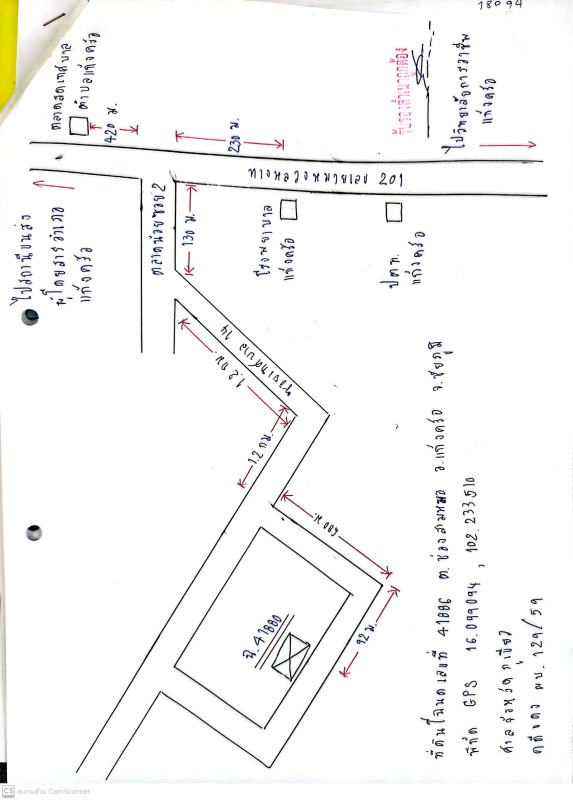 18094
รับรองสำเนาถูกต้อง
ตลาดสดเทศบาล
ตำบลแก้งคร้อ
420 ม.
230 ม.
ไปวิทยาลัยการอาชีพ
แก้งคร้อ
ทางหลวงหมายเลข 201
ไปสถานีขนส่ง
ผู้โดยสารอำเภอ
แก้งคร้อ
ตลาดน้อยซอย 2
130 ม.
โรงพยาบาล
แก้งคร้อ
ปตท.
แก้งคร้อ
ซอยเทศบาล 14
1.2 กม.
1.2 กม.
680 ม.
92 ม.
ฉ. 41880
ที่ดินโฉนดเลขที่ 41886 ต.ช่องสามหมอ อ.แก้งคร้อ จ.ชัยภูมิ
พิกัด GPS 16.099094 , 102.233510
ศาลจังหวัดภูเขียว
คดีแดง ผบ. 129/59
CS สแกนด้วย CamScanner